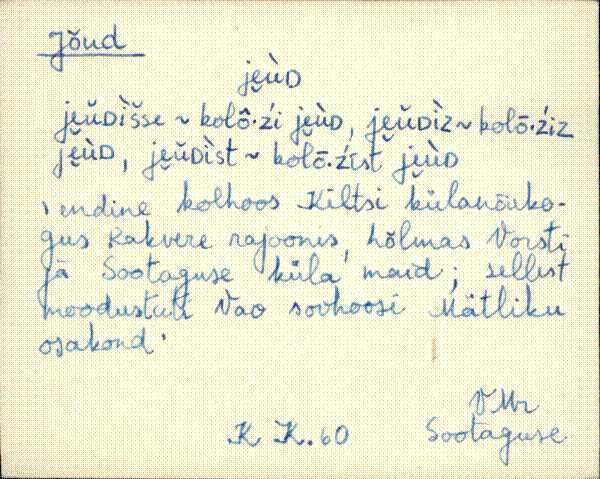 Jõud
je̬ùD
je̬ŭDìšse ~ kolô·źi je̬ùD, je̬ŭDìz ~ kolō·źiz
je̬ùD, je̬ŭDìst ~ kolō·źist je̬ùD
'endine kolhoos Kiltsi külanõuko-
gus Rakvere rajoonis, hõlmas Vorsti
ja Sootaguse küla maid; sellest
moodustati Vao sovhoosi Mätliku
osakond'
VMr
K K. 60 Sootaguse